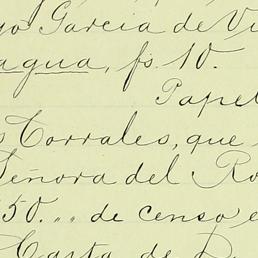 yo García de Vi
agua, fs. 10.
Papel
s Corrales, que
Señora del Ro
50. „ „ de censo e
Carta de D